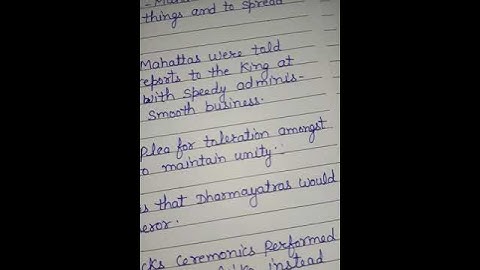 things and to spread
Mahattas were told
reports to the King at
with speedy adminis-
smooth business.
Plea for toleration amongst
to maintain unity:
s that Dharmayatras would
eror.
cks ceremonies performed
instead